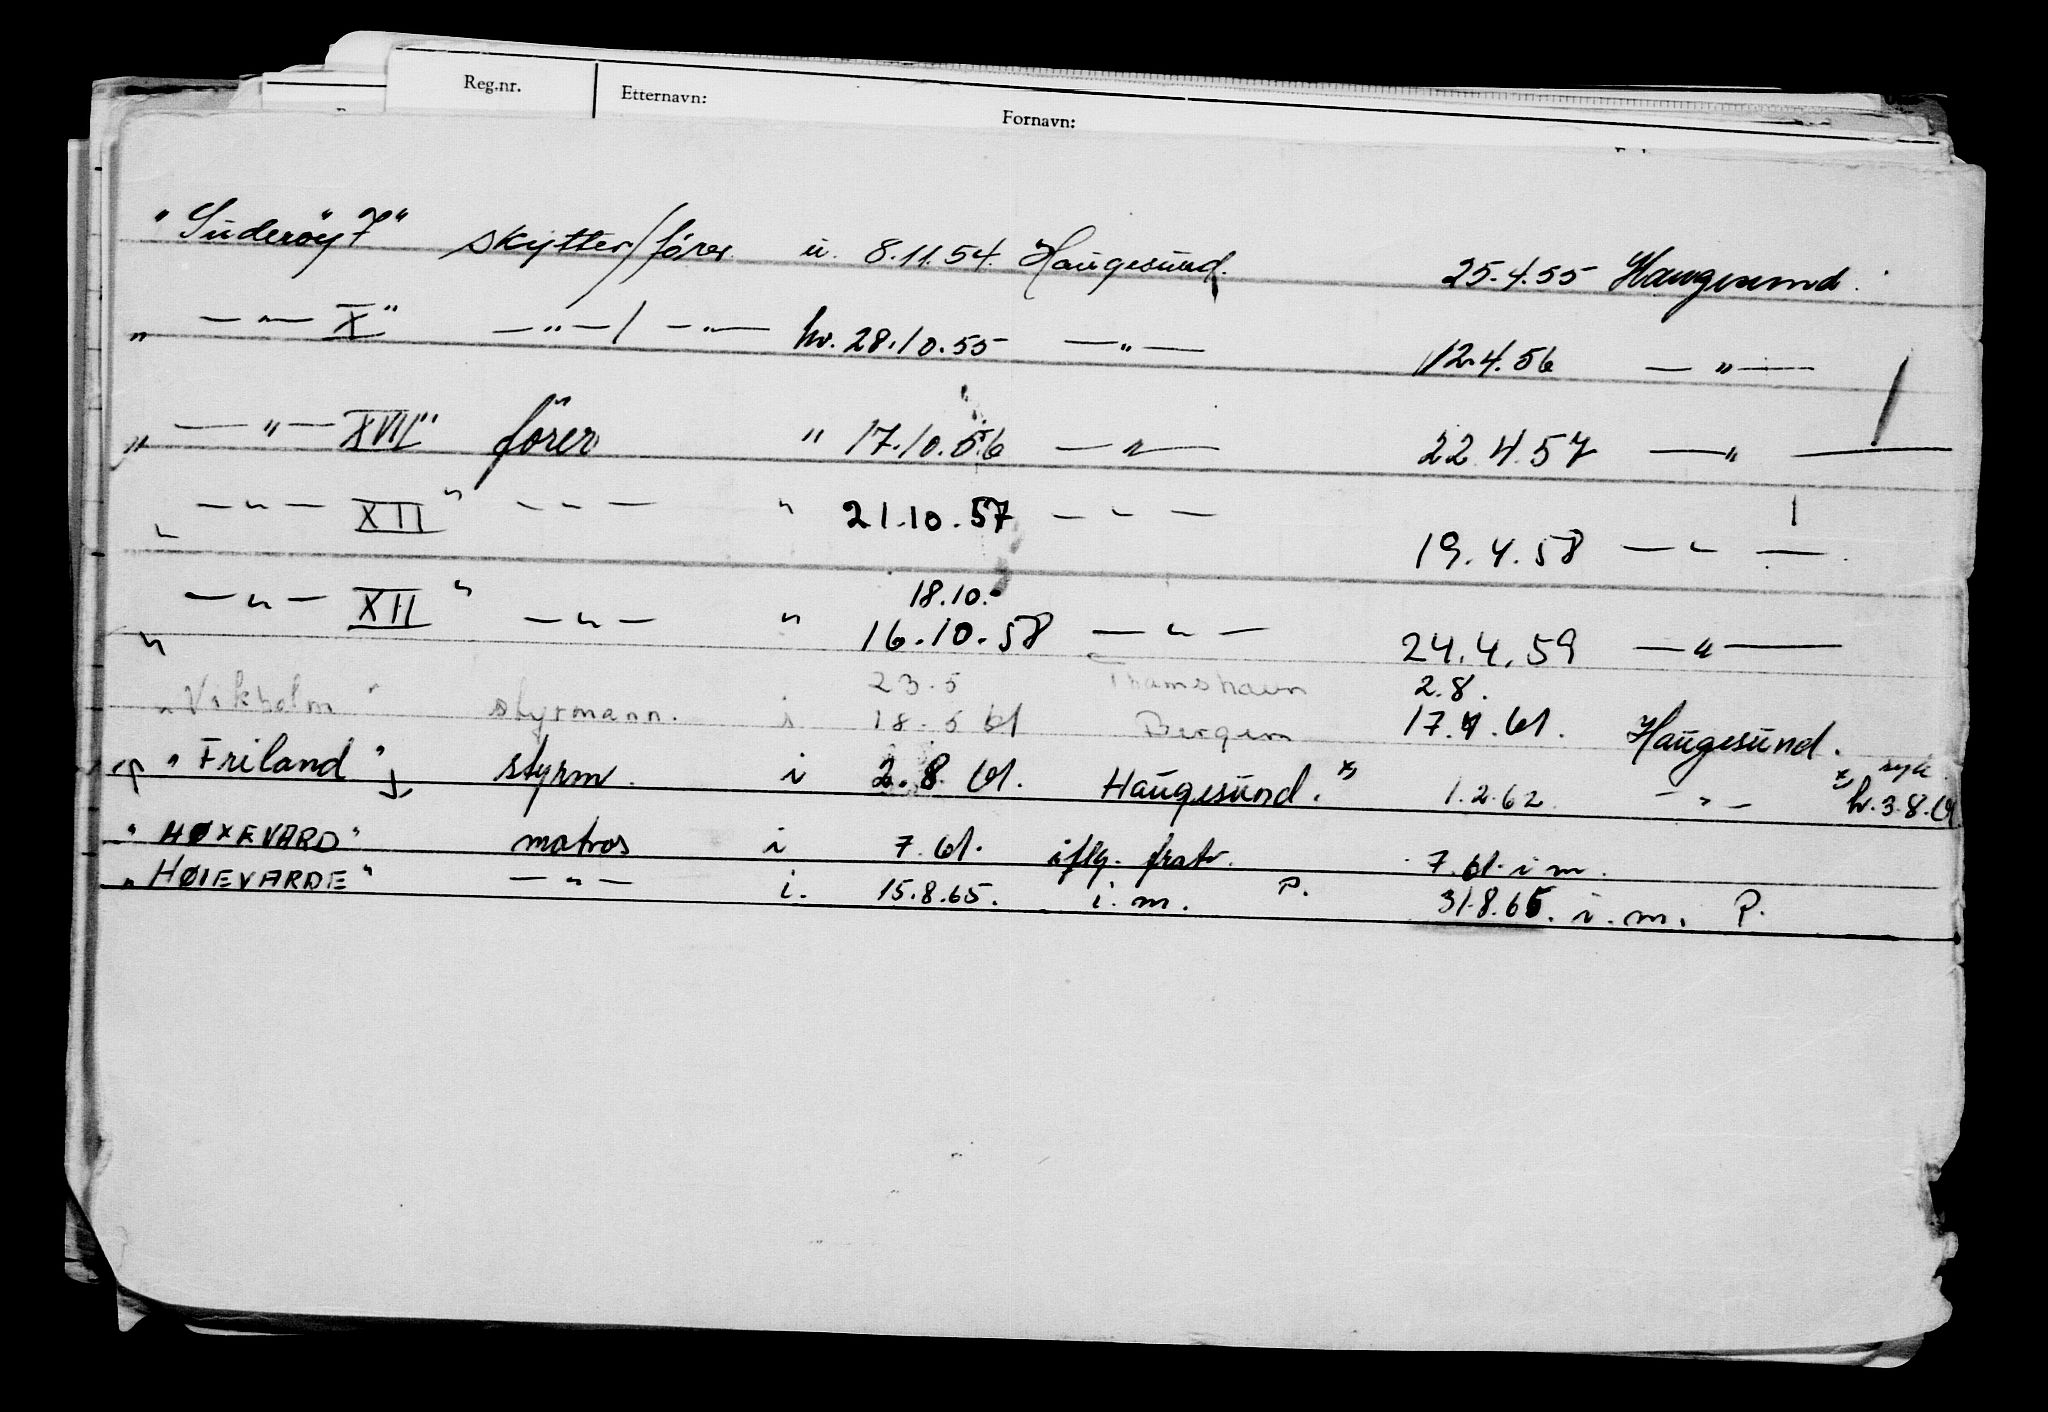 Reg.nr. Etternavn: Fornavn:
"Suderöy 7" skytter/fører u. 8.11.54. Haugesund. 25.4.55 Haugesund.
" — " — X" — " — / — " — hv. 28.10.55 — " — 12.4.56 — " —
" — " — XVII" fører " 17.10.56 — " — 22.4.57 — " —
" — " — XII" — " — " 21.10.57 — " — 19.4.58 — " —
18.10.
" — " — XII" — " — " 16.10.58 — " — 24.4.59 — " —
23.5 Thamshavn 2.8.
"Vikholm" styrmann. i 18.5 61 Bergen 17.7.61. Haugesund.
"Friland" styrm. i 2.8 61. Haugesund. x) 1.2.62 — " — x) syk
hv. 3.8.61
"HØXEVARD" matros i 7.61. iflg. fratr. 7.61. i m.
"HØIEVARDE" — " — i. 15.8.65. i. m. P. 31.8.65. i. m. P.